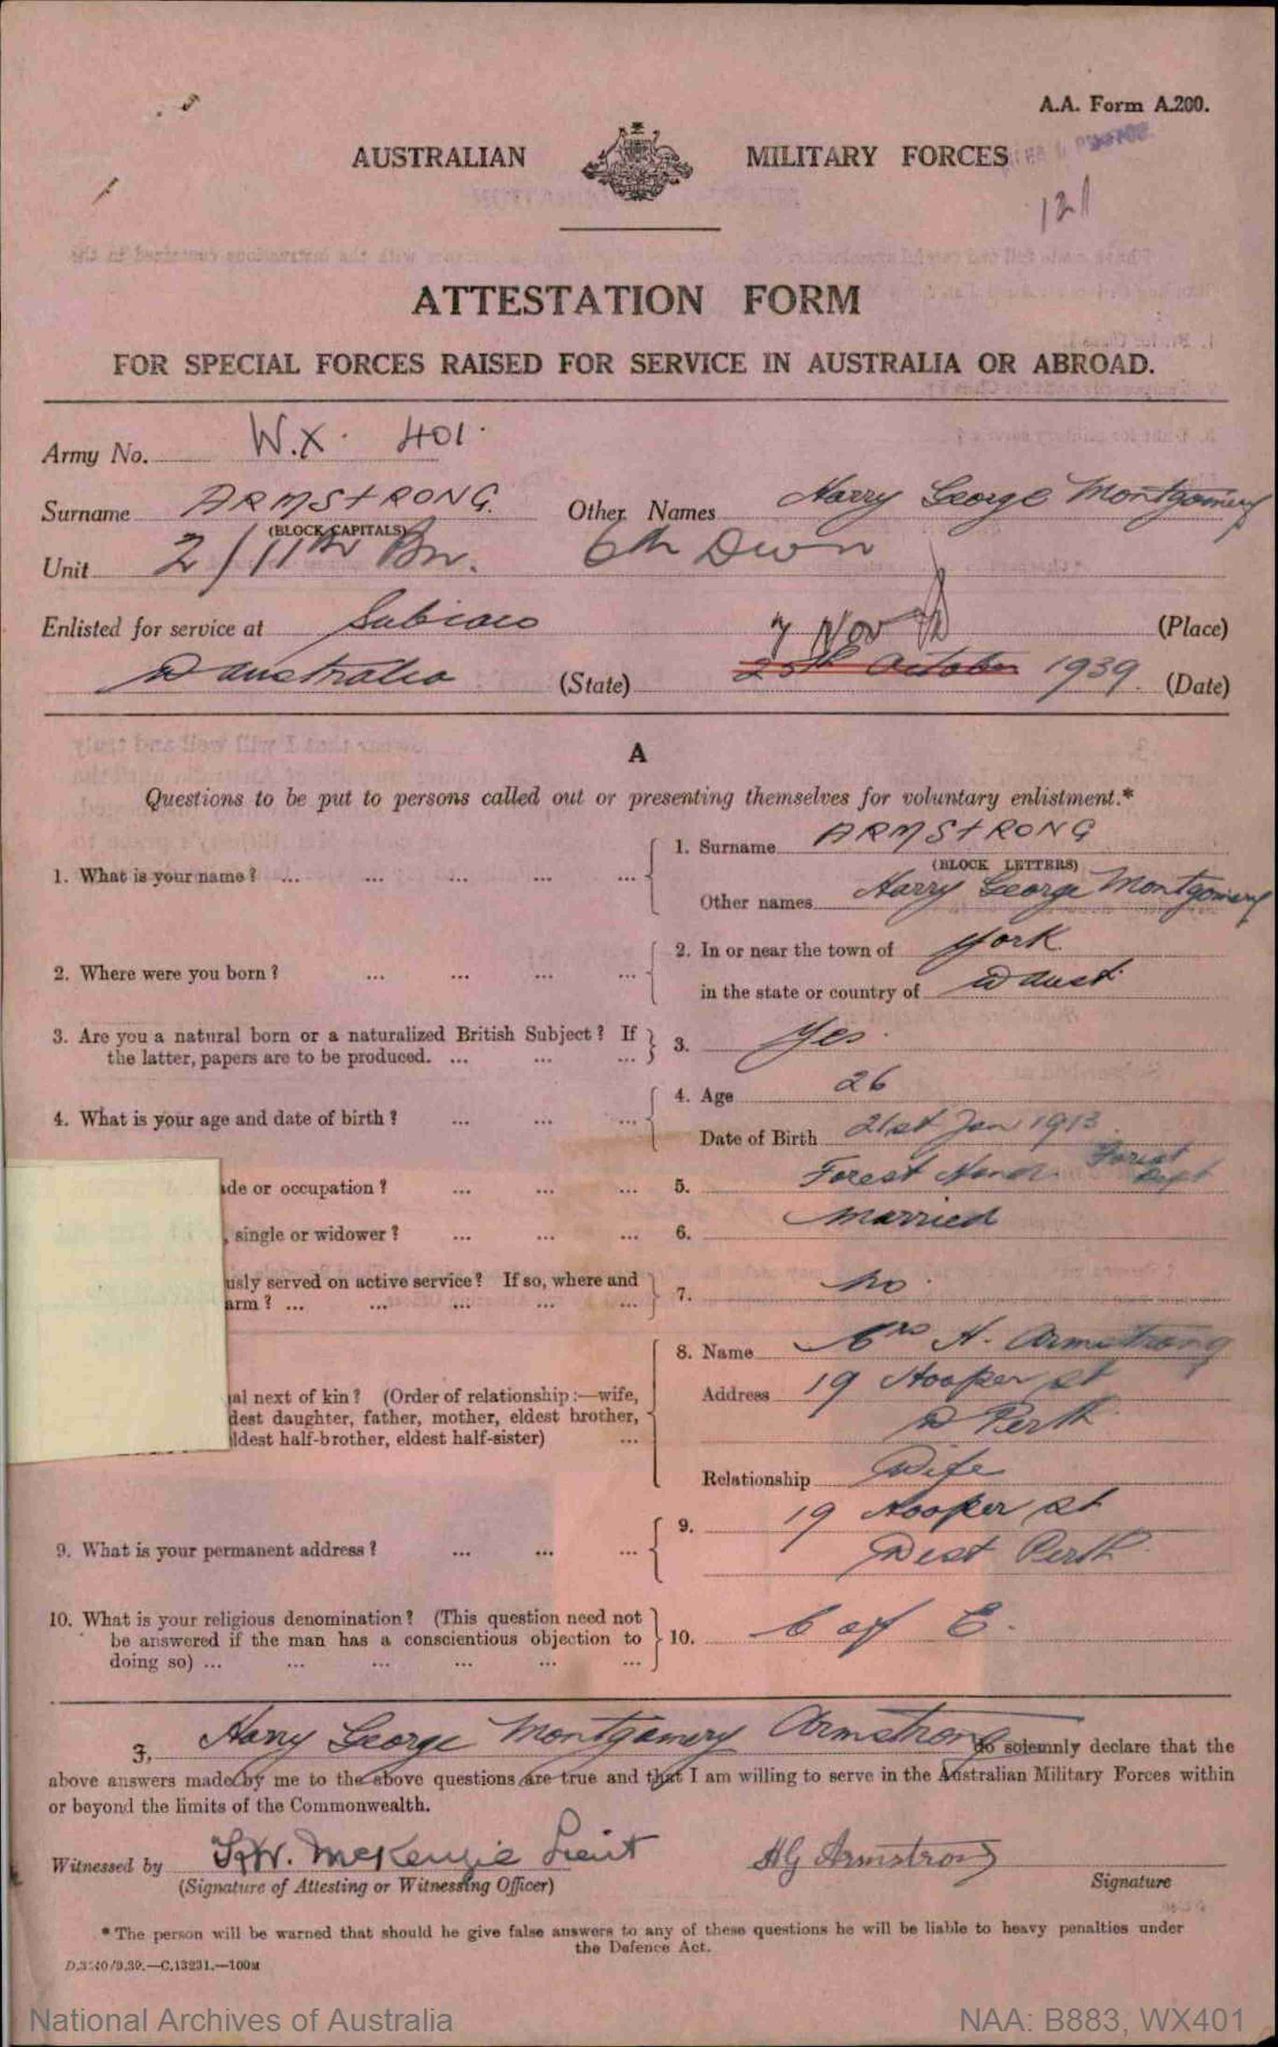 A.A. Form A.200.
AUSTRALIAN MILITARY FORCES
121
ATTESTATION FORM
FOR SPECIAL FORCES RAISED FOR SERVICE IN AUSTRALIA OR ABROAD.
Army No. W.X. 401.
Surname ARMSTRONG. Other Names Harry George Montgomery
(BLOCK CAPITALS)
Unit 2/11th Bn. 6th Divn
Enlisted for service at Subiaco (Place)
7 Nov
W Australia (State) 25th October 1939. (Date)
A
Questions to be put to persons called out or presenting themselves for voluntary enlistment.*
1. What is your name? ... ... ... ... ... 1. Surname ARMSTRONG
(BLOCK LETTERS)
Other names Harry George Montgomery
2. Where were you born? ... ... ... ... 2. In or near the town of York
in the state or country of W Aust.
3. Are you a natural born or a naturalized British Subject? If
the latter, papers are to be produced. ... ... ... 3. Yes.
4. What is your age and date of birth? ... ... ... 4. Age 26
Date of Birth 21st Jan 1913.
de or occupation? ... ... ... 5. Forest Hand. Forest Dept
, single or widower? ... ... ... 6. Married
usly served on active service? If so, where and
arm? ... ... ... ... ... 7. No.
8. Name Mrs H. Armstrong
al next of kin? (Order of relationship:—wife, Address 19 Hooper st
dest daughter, father, mother, eldest brother, W Perth
ldest half-brother, eldest half-sister) ...
Relationship Wife
9. What is your permanent address? ... ... ... 9. 19 Hooper st
West Perth.
10. What is your religious denomination? (This question need not
be answered if the man has a conscientious objection to
doing so) ... ... ... ... ... ... 10. C of E.
I, Harry George Montgomery Armstrong do solemnly declare that the
above answers made by me to the above questions are true and that I am willing to serve in the Australian Military Forces within
or beyond the limits of the Commonwealth.
Witnessed by McKenzie Lieut HG Armstrong
(Signature of Attesting or Witnessing Officer) Signature
* The person will be warned that should he give false answers to any of these questions he will be liable to heavy penalties under
the Defence Act.
D.3240/9.39.—C.13231.—100M
National Archives of Australia NAA: B883, WX401